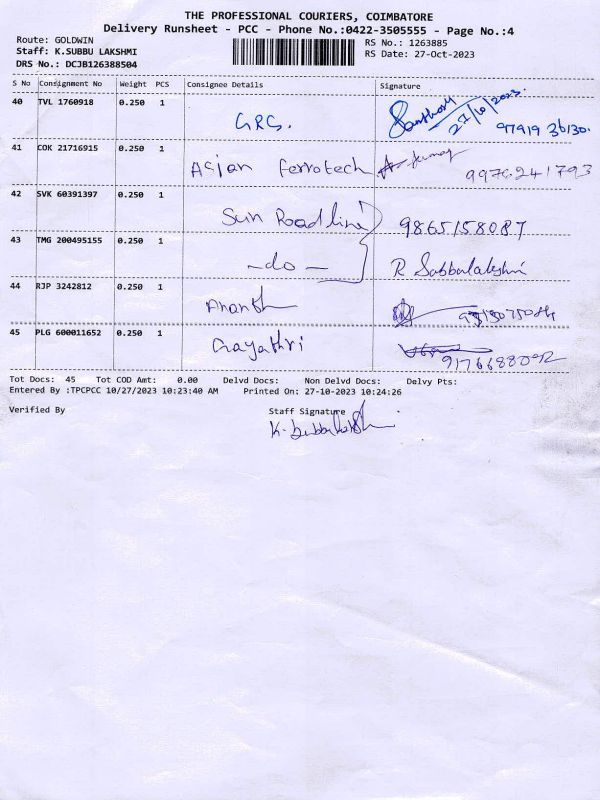 THE PROFESSIONAL COURIERS, COIMBATORE
Delivery Runsheet - PCC - Phone No.:0422-3505555 - Page No.:4
Route: GOLDWIN RS No.: 1263885
Staff: K.SUBBU LAKSHMI RS Date: 27-Oct-2023
DRS No.: DCJB126388504
S No Consignment No Weight PCS Consignee Details Signature
40 TVL 1760918 0.250 1 GRG. 27/10/2023. 97919 36130.
41 COK 21716915 0.250 1 Asian Ferrotech Kumar 9976241793
42 SVK 60391397 0.250 1 Sun Roadline 9865158087
43 TMG 200495155 0.250 1 -do- R Subbulakshmi
44 RJP 3242812 0.250 1 Ananth
45 PLG 600011652 0.250 1 Gayathri 9176688092
Tot Docs: 45 Tot COD Amt: 0.00 Delvd Docs: Non Delvd Docs: Delvy Pts:
Entered By :TPCPCC 10/27/2023 10:23:40 AM Printed On: 27-10-2023 10:24:26
Verified By Staff Signature